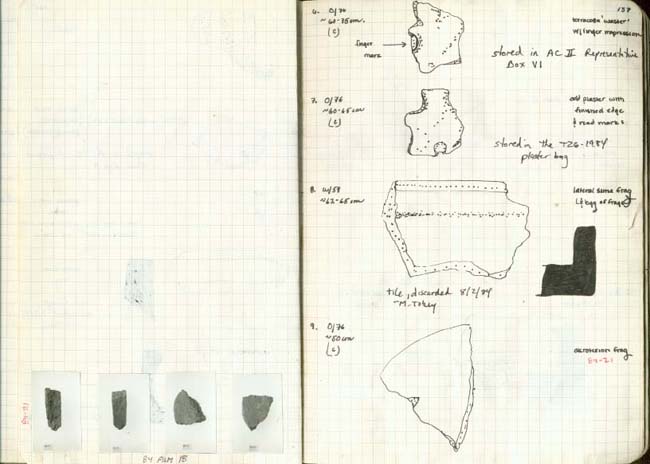 137
6. O/76
~60-75cm.
(C)
finger
mark
terracotta "waster"
w/finger impression
stored in AC II Representative
Box VI
7. O/76
~60-65cm
(C)
odd plaster with
finished edge
& reed marks
stored in the TZ6-1984
plaster bag
8. W/58
~62-65cm
lateral sima frag
tile, discarded 8/2/84
9. O/76
~60cm
(C)
akroterion frag
84-21
84-21
84 AWM 18